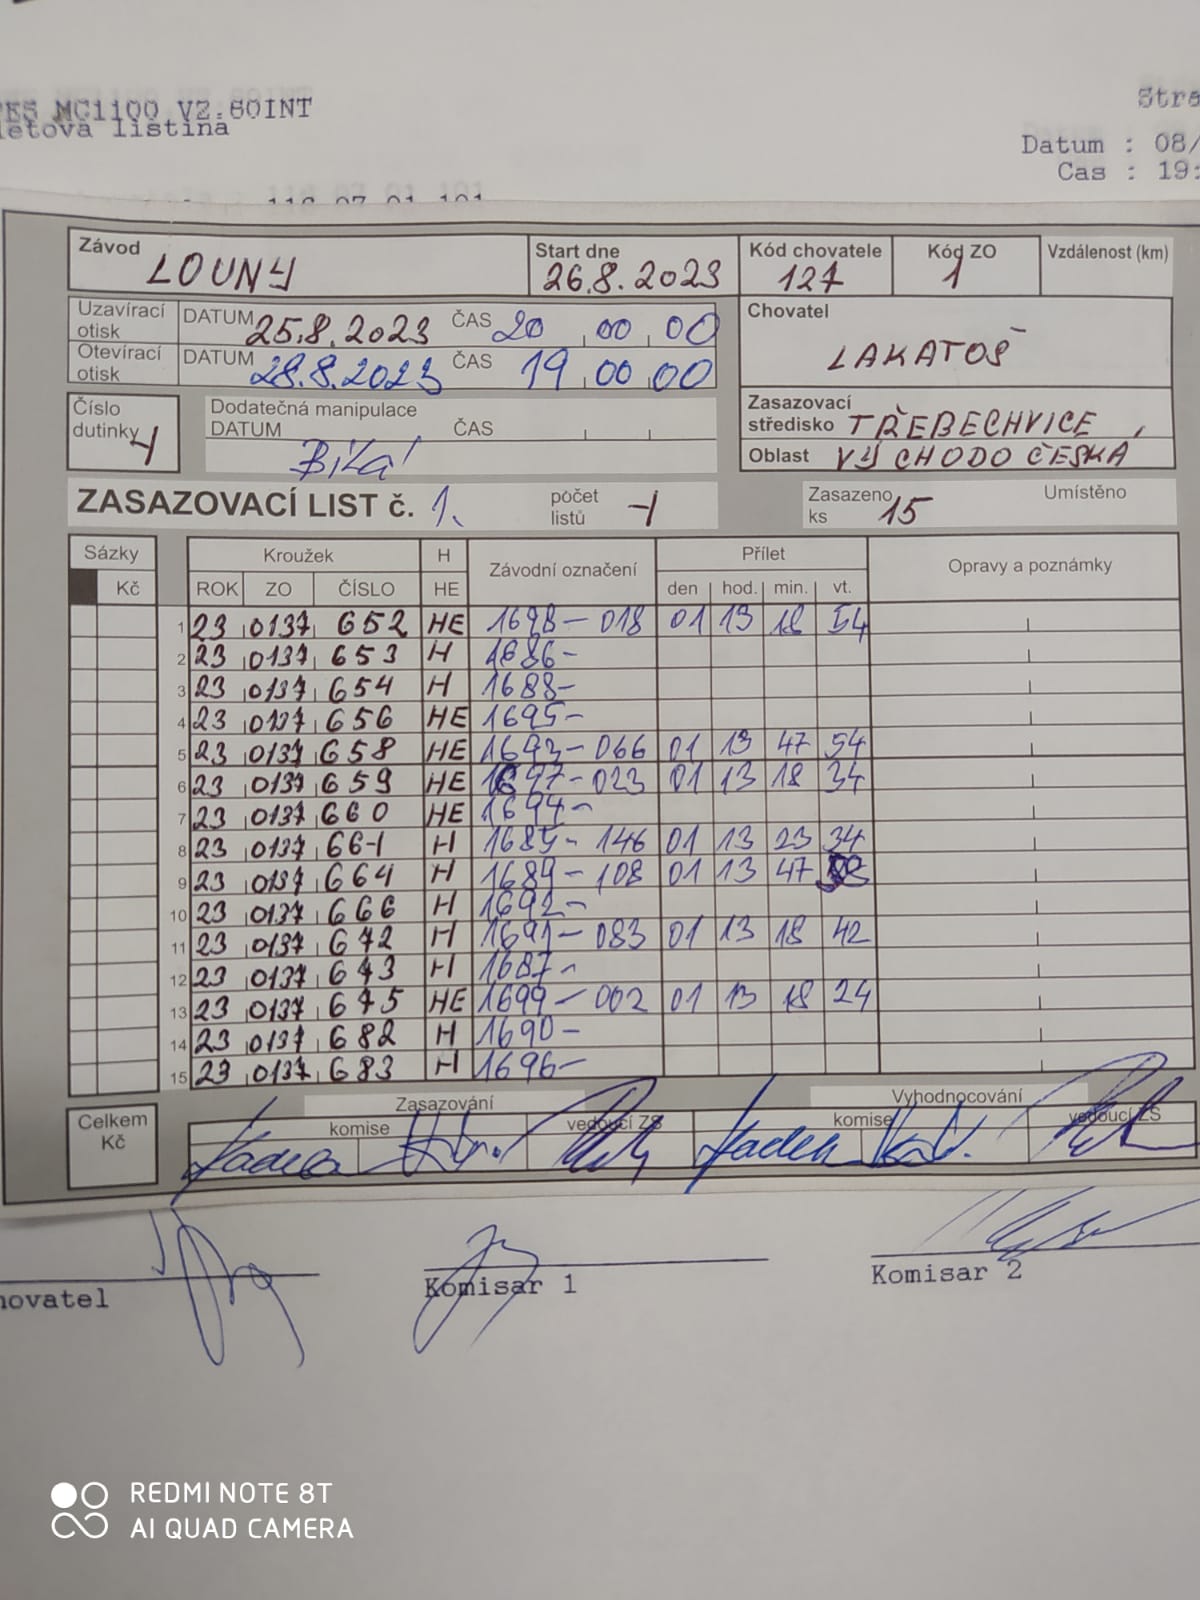 TKS MC1100 V2.60INT
letova listina
Stra
Datum : 08/
Cas : 19:
Závod LOUNY
Start dne 26.8.2023
Kód chovatele 127
Kód ZO 1
Vzdálenost (km)
Uzavírací otisk DATUM 25.8.2023 ČAS 20 00 00
Otevírací otisk DATUM 28.8.2023 ČAS 19 00 00
Chovatel
LAKATOŠ
Číslo dutinky 1
Dodatečná manipulace
DATUM ČAS
Bílá
Zasazovací středisko TŘEBECHVICE
Oblast VÝCHODOČESKÁ
ZASAZOVACÍ LIST č. 1.
počet listů 1
Zasazeno ks 15
Umístěno
Sázky Kroužek H Závodní označení Přílet Opravy a poznámky
Kč ROK ZO ČÍSLO HE den hod. min. vt.
1 23 0137 652 HE 1698-018 01 13 18 54
2 23 0137 653 H 1686-
3 23 0137 654 H 1688-
4 23 0137 656 HE 1695-
5 23 0137 658 HE 1693-066 01 13 47 54
6 23 0137 659 HE 1697-023 01 13 18 34
7 23 0137 660 HE 1694-
8 23 0137 661 H 1685-146 01 13 23 34
9 23 0137 664 H 1689-108 01 13 47
10 23 0137 666 H 1692-
11 23 0137 672 H 1691-083 01 13 18 42
12 23 0137 673 H 1687-
13 23 0137 675 HE 1699-002 01 13 18 24
14 23 0137 682 H 1690-
15 23 0137 683 H 1696-
Celkem Kč
Zasazování Vyhodnocování
komise vedoucí ZS komise vedoucí ZS
hovatel
Komisar 1
Komisar 2
REDMI NOTE 8T
AI QUAD CAMERA